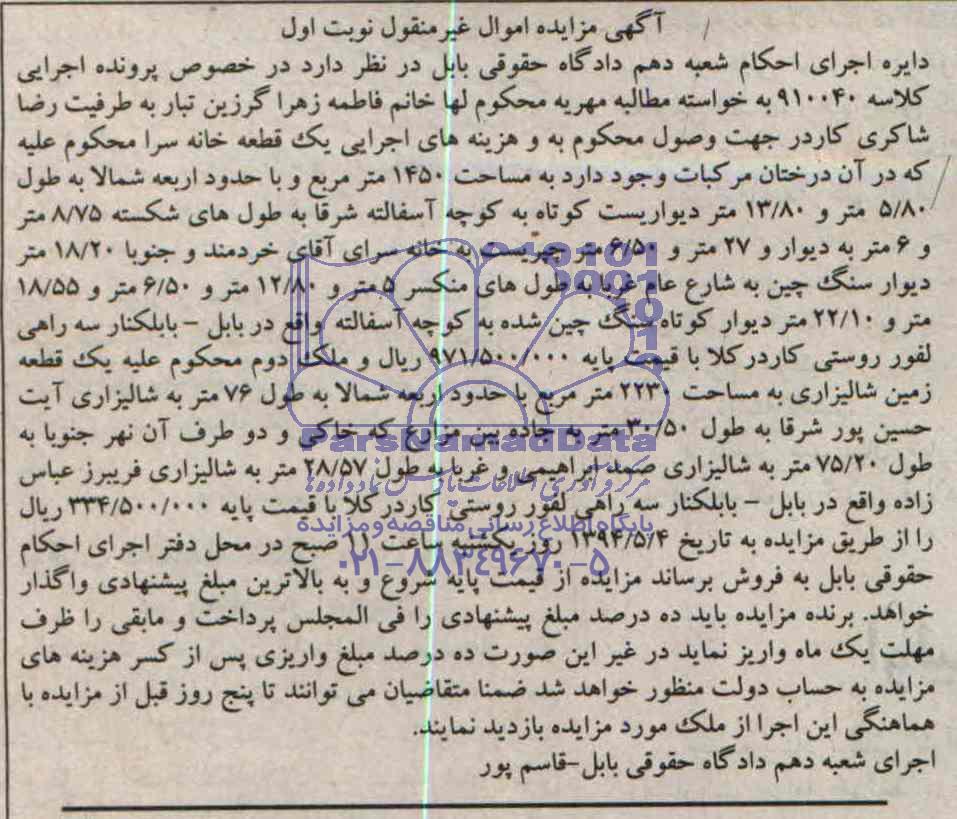 آگهی مزایده اموال غیرمنقول نوبت اول
دایره اجرای احکام شعبه دهم دادگاه حقوقی بابل در نظر دارد در خصوص پرونده اجرایی
کلاسه ۹۱۰۰۴۰ به خواسته مطالبه مهریه محکوم لها خانم فاطمه زهرا گرزین تبار به طرفیت رضا
شاکری کاردر جهت وصول محکوم به و هزینه های اجرایی یک قطعه خانه سرا محکوم علیه
که در آن درختان مرکبات وجود دارد به مساحت ۱۴۵۰ متر مربع و با حدود اربعه شمالا به طول
۵/۸۰ متر و ۱۳/۸۰ متر دیواریست کوتاه به کوچه آسفالته شرقا به طول های شکسته ۸/۷۵ متر
و ۶ متر به دیوار و ۲۷ متر و ۶/۵۰ متر چپریست به خانه سرای آقای خردمند و جنوبا ۱۸/۲۰ متر
دیوار سنگ چین به شارع عام غربا به طول های منکسر ۵ متر و ۱۲/۸۰ متر و ۶/۵۰ متر و ۱۸/۵۵
متر و ۲۲/۱۰ متر دیوار کوتاه سنگ چین شده به کوچه آسفالته واقع در بابل - بابلکنار سه راهی
لفور روستی کاردرکلا با قیمت پایه ۹۷۱/۵۰۰/۰۰۰ ریال و ملک دوم محکوم علیه یک قطعه
زمین شالیزاری به مساحت ۲۲۳۰ متر مربع با حدود اربعه شمالا به طول ۷۶ متر به شالیزاری آیت
حسین پور شرقا به طول ۳۰/۵۰ متر به جاده بین مزارع که خاکی و دو طرف آن نهر جنوبا به
طول ۷۵/۲۰ متر به شالیزاری صمد ابراهیمی و غربا به طول ۲۸/۵۷ متر به شالیزاری فریبرز عباس
زاده واقع در بابل - بابلکنار سه راهی لفور روستی کاردرکلا با قیمت پایه ۳۳۴/۵۰۰/۰۰۰ ریال
را از طریق مزایده به تاریخ ۱۳۹۴/۵/۴ روز یکشنبه ساعت ۱۱ صبح در محل دفتر اجرای احکام
حقوقی بابل به فروش برساند مزایده از قیمت پایه شروع و به بالاترین مبلغ پیشنهادی واگذار
خواهد. برنده مزایده باید ده درصد مبلغ پیشنهادی را فی المجلس پرداخت و مابقی را ظرف
مهلت یک ماه واریز نماید در غیر این صورت ده درصد مبلغ واریزی پس از کسر هزینه های
مزایده به حساب دولت منظور خواهد شد ضمنا متقاضیان می توانند تا پنج روز قبل از مزایده با
هماهنگی این اجرا از ملک مورد مزایده بازدید نمایند.
اجرای شعبه دهم دادگاه حقوقی بابل-قاسم پور
ParsNamadData
پایگاه اطلاع رسانی مناقصه و مزایده
۰۲۱-۸۸۳۴۹۶۷۰-۵